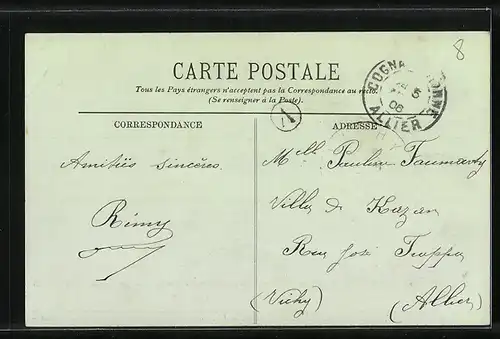 8
CARTE POSTALE
Tous les Pays étrangers n'acceptent pas la Correspondance au recto.
(Se renseigner à la Poste).
COGNA ONNE
5
06
ALLIER
A
CORRESPONDANCE
ADRESSE
Amitiés sincères.
Rémy
Melle Pauline
Villa de Kazan
Rue José
(Vichy) (Allier)